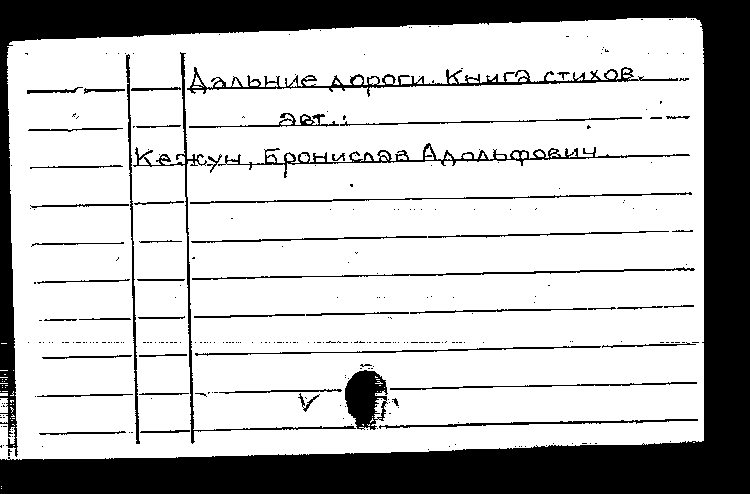 Дальние дороги. Книга стихов.
авт.:
Кежун, Бронислав Адольфович.